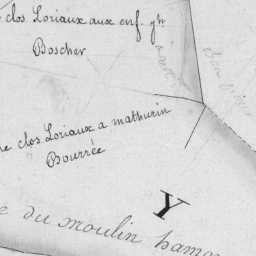 clos Loriaux aux enf. gn
Boscher
clos Loriaux a mathurin
Bourrée
Y
du moulin hamon